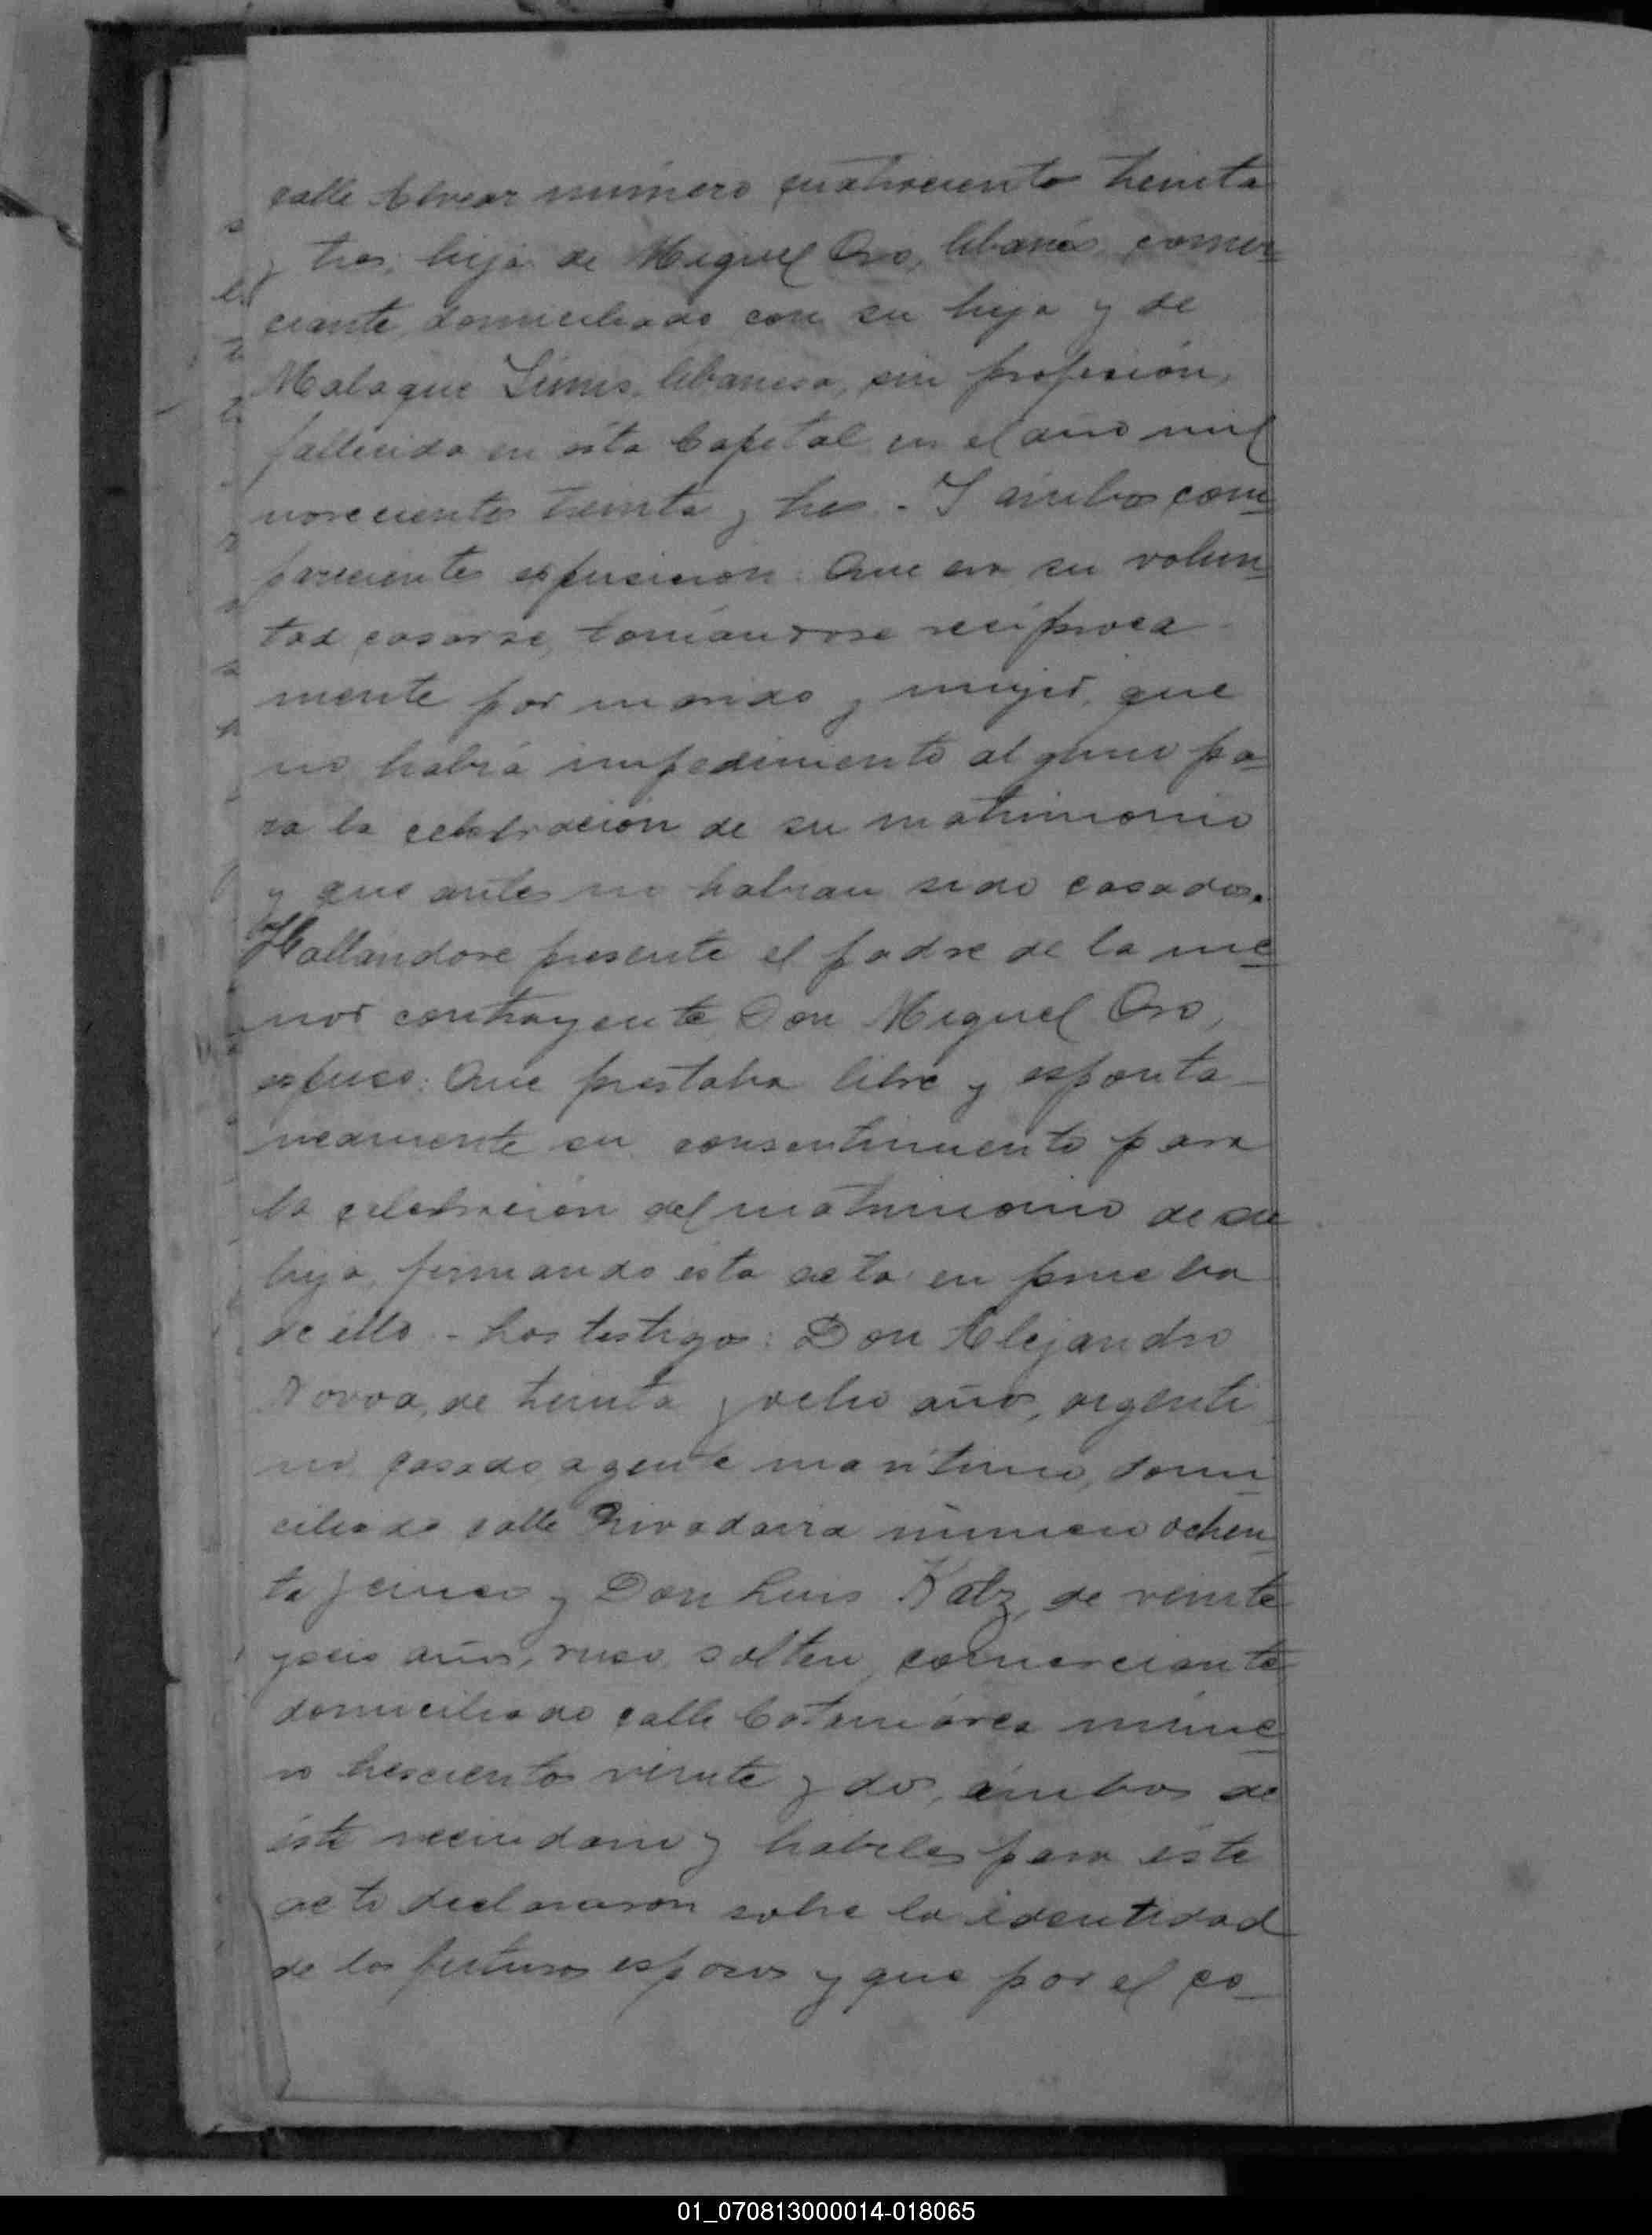 calle Alvear número cuatrociento treinta
y tres, hija de Miguel Oro, libanés, comer-
ciante, domiciliado con su hija y de
Malaque Simes, libanesa, sin profesión,
fallecida en ésta Capital en el año mil
novecientos treinta y tres. - Y ámbos com-
parecientes expusieron: Que era su volun-
tad casarse, tomándose recíproca-
mente por marido y mujer, que
no había impedimento alguno pa-
ra la celebración de su matrimonio
y que antes no habían sido casados.
Hallándose presente el padre de la me-
nor contrayente, Don Miguel Oro,
expuso: Que prestaba libre y esponta-
neamente su consentimiento para
la celebración del matrimonio de su
hija, firmando ésta acta en prueba
de éllo. - Los testigos: Don Alejandro
Novoa, de treinta y ocho años, argenti-
no, casado, agente marítimo, domi-
ciliado calle Rivadavia número ochen-
ta y cinco y Don Luis Katz, de veinte
y seis años, ruso, soltero, comerciante
domiciliado calle Catamarca núme-
ro trescientos veinte y dos, ámbos de
éste vecindario y hábiles para éste
acto declararon sobre la identidad
de los futuros esposos y que por el co-
01_070813000014-018065